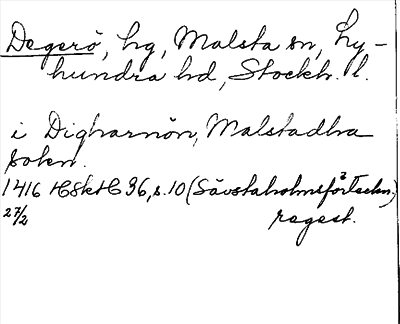 Degerö, hg, Malsta sn, Ly-
hundra hd, Stockh. l.
i Digharnön, Malstadha
sokn.
1416 HSkH 36, s. 10 (Sävstaholmsförteckn.,
27/2 regest.